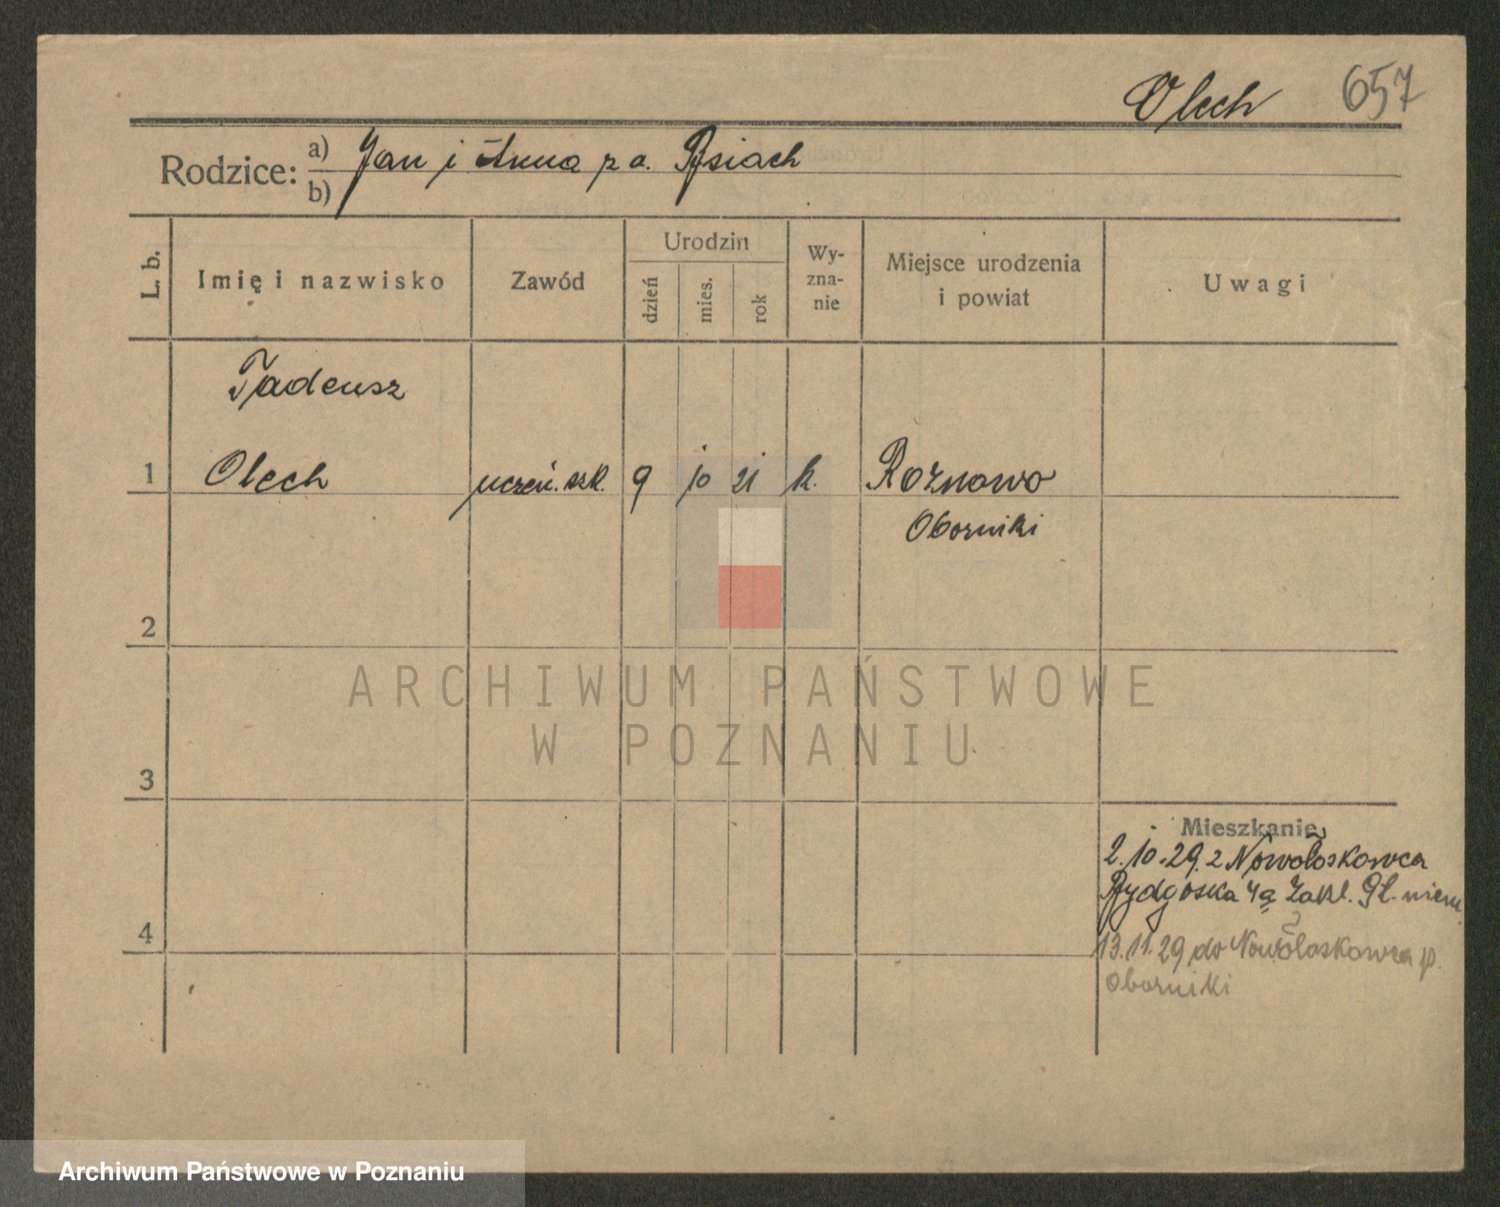 Olech 657
Rodzice: a) Jan i Anna z d.
b)
L. b.
Imię i nazwisko
Zawód
Urodzin
dzień
mies.
rok
Wy-
zna-
nie
Miejsce urodzenia
i powiat
Uwagi
Tadeusz
1 Olech uczeń. szk. 9 10 21 k. Rożnowo
Oborniki
2
3
4
Mieszkanie
2.10.29. z
Bydgoska 4a Zakł. Gł. niem.
13.11.29 do p.
Oborniki
ARCHIWUM PAŃSTWOWE
W POZNANIU
Archiwum Państwowe w Poznaniu